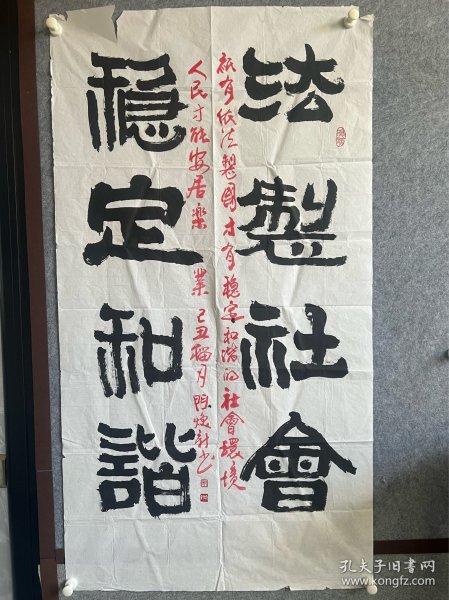 法製社會
穩定和諧
祇有依法製國才有穩定和谐的社會環境
人民才能安居樂業 己丑榴月陈焕新书
孔夫子旧书网
www.kongfz.com